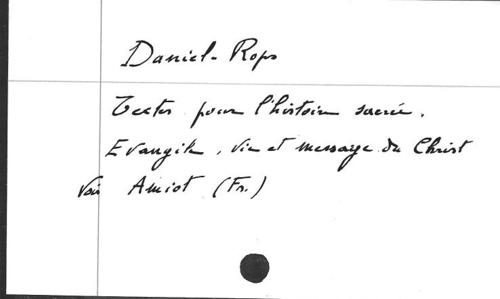 Daniel-Rops
Textes pour l'histoire sacrée.
Evangile, vie et message du Christ
Voir Amiot (Fr.)